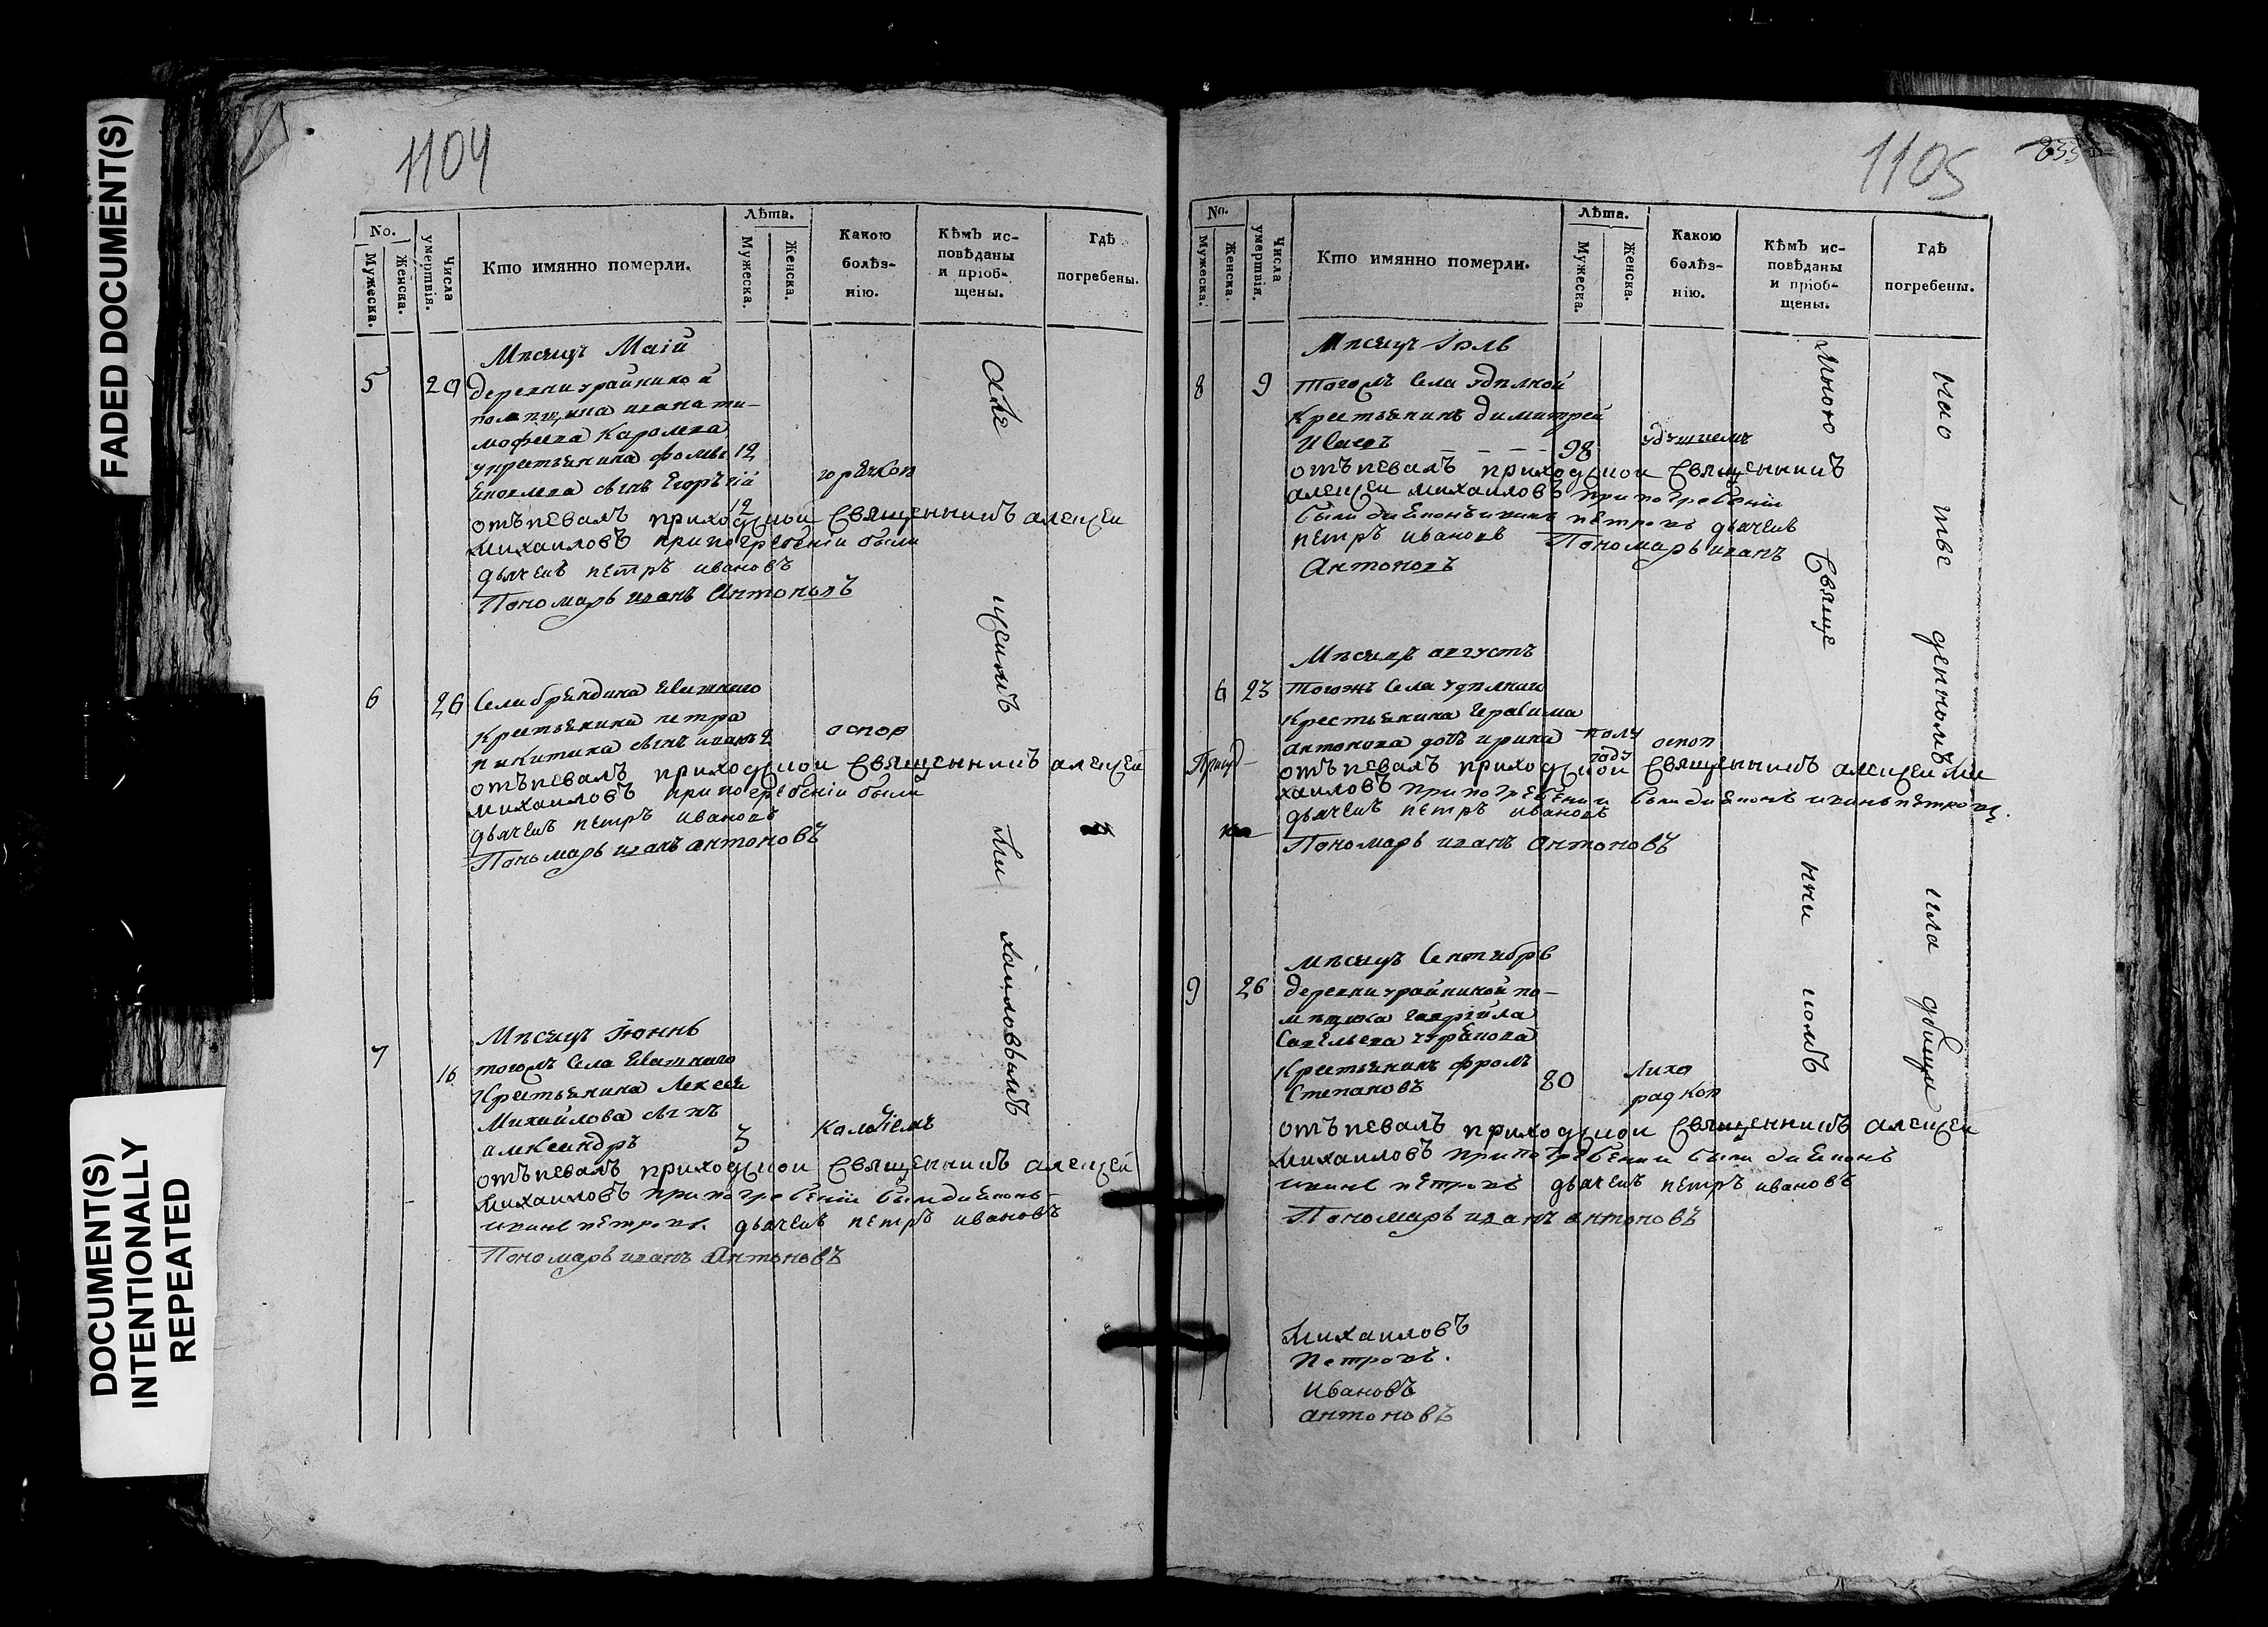 FADED DOCUMENT(S)
DOCUMENT(S)
INTENTIONALLY
REPEATED
1104
No.
Мужеска.
Женска.
Числа
умертвія.
Кто имянно померли.
Лѣта.
Мужеска.
Женска.
Какою
болѣз-
нію.
Кѣмъ ис-
повѣданы
и пріоб-
щены.
Гдѣ
погребены.
Мѣсяцъ Маій
5 29 деревни
помѣщика ивана ти-
мофеева
крестьянина фомы 12
сынъ Егорѣій горячкою
12
отъпевалъ приходскои Священникъ алексеи
Михаиловъ при погребеніи были
дьячекъ петръ ивановъ
Пономарь иванъ Антоновъ
6 26 Села
крестьянина петра
никитина сынъ иванъ 2 оспою
отъпевалъ приходскои Священникъ алексей
михаиловъ при погребеніи были
дьячекъ петръ ивановъ
Пономарь иванъ антоновъ
Мѣсяцъ Іюннь
7 16 тогожъ Села
Крестьянина Лексея
Михайлова сынъ
алмксандръ 3 колотіемъ
отъпевалъ приходскои Священникъ алексей
Михаиловъ при погребеніи были диаконъ
иванъ петровъ. дьячекъ петръ ивановъ
Пономарь иванъ Антоновъ
Але
ксеимъ
Ми
хаиловымъ
1105
No.
Мужеска.
Женска.
Числа
умертвія.
Кто имянно померли.
Лѣта.
Мужеска.
Женска.
Какою
болѣз-
нію.
Кѣмъ ис-
повѣданы
и пріоб-
щены.
Гдѣ
погребены.
Мѣсяцъ Іюль
8 9 тогожъ Села удѣлной
крестьянинъ димитрей
98 удушіемъ
отъпевалъ приходскои Священникъ
алексеи михаиловъ при погребеніи
были диаконъ иванъ петровъ дьячекъ
петръ ивановъ Пономарь иванъ
Антоновъ
Мѣсяцъ августъ
6 23 тогожъ Села удѣлнаи
крестьянина Герасима
антонова дочь ирина полу оспою
году
отъпевалъ приходскои Священникъ алексеи Ми
хаиловъ при погребении были диаконъ иванъ петровъ.
дьячекъ петръ ивановъ
Пономарь иванъ антоновъ
Мѣсяцъ Сентябрь
9 26 деревни по-
мѣщика гаврійла
Савельева
крестьянинъ фролъ
Степановъ 80 лихо
радкою
отъпевалъ приходскои Священникъ алексеи
Михаиловъ при погребении были диаконъ
иванъ петровъ дьячекъ петръ ивановъ
Пономарь иванъ антоновъ
Михаиловъ
Петровъ.
ивановъ
антоновъ
Мною
Свяще
нни
комъ